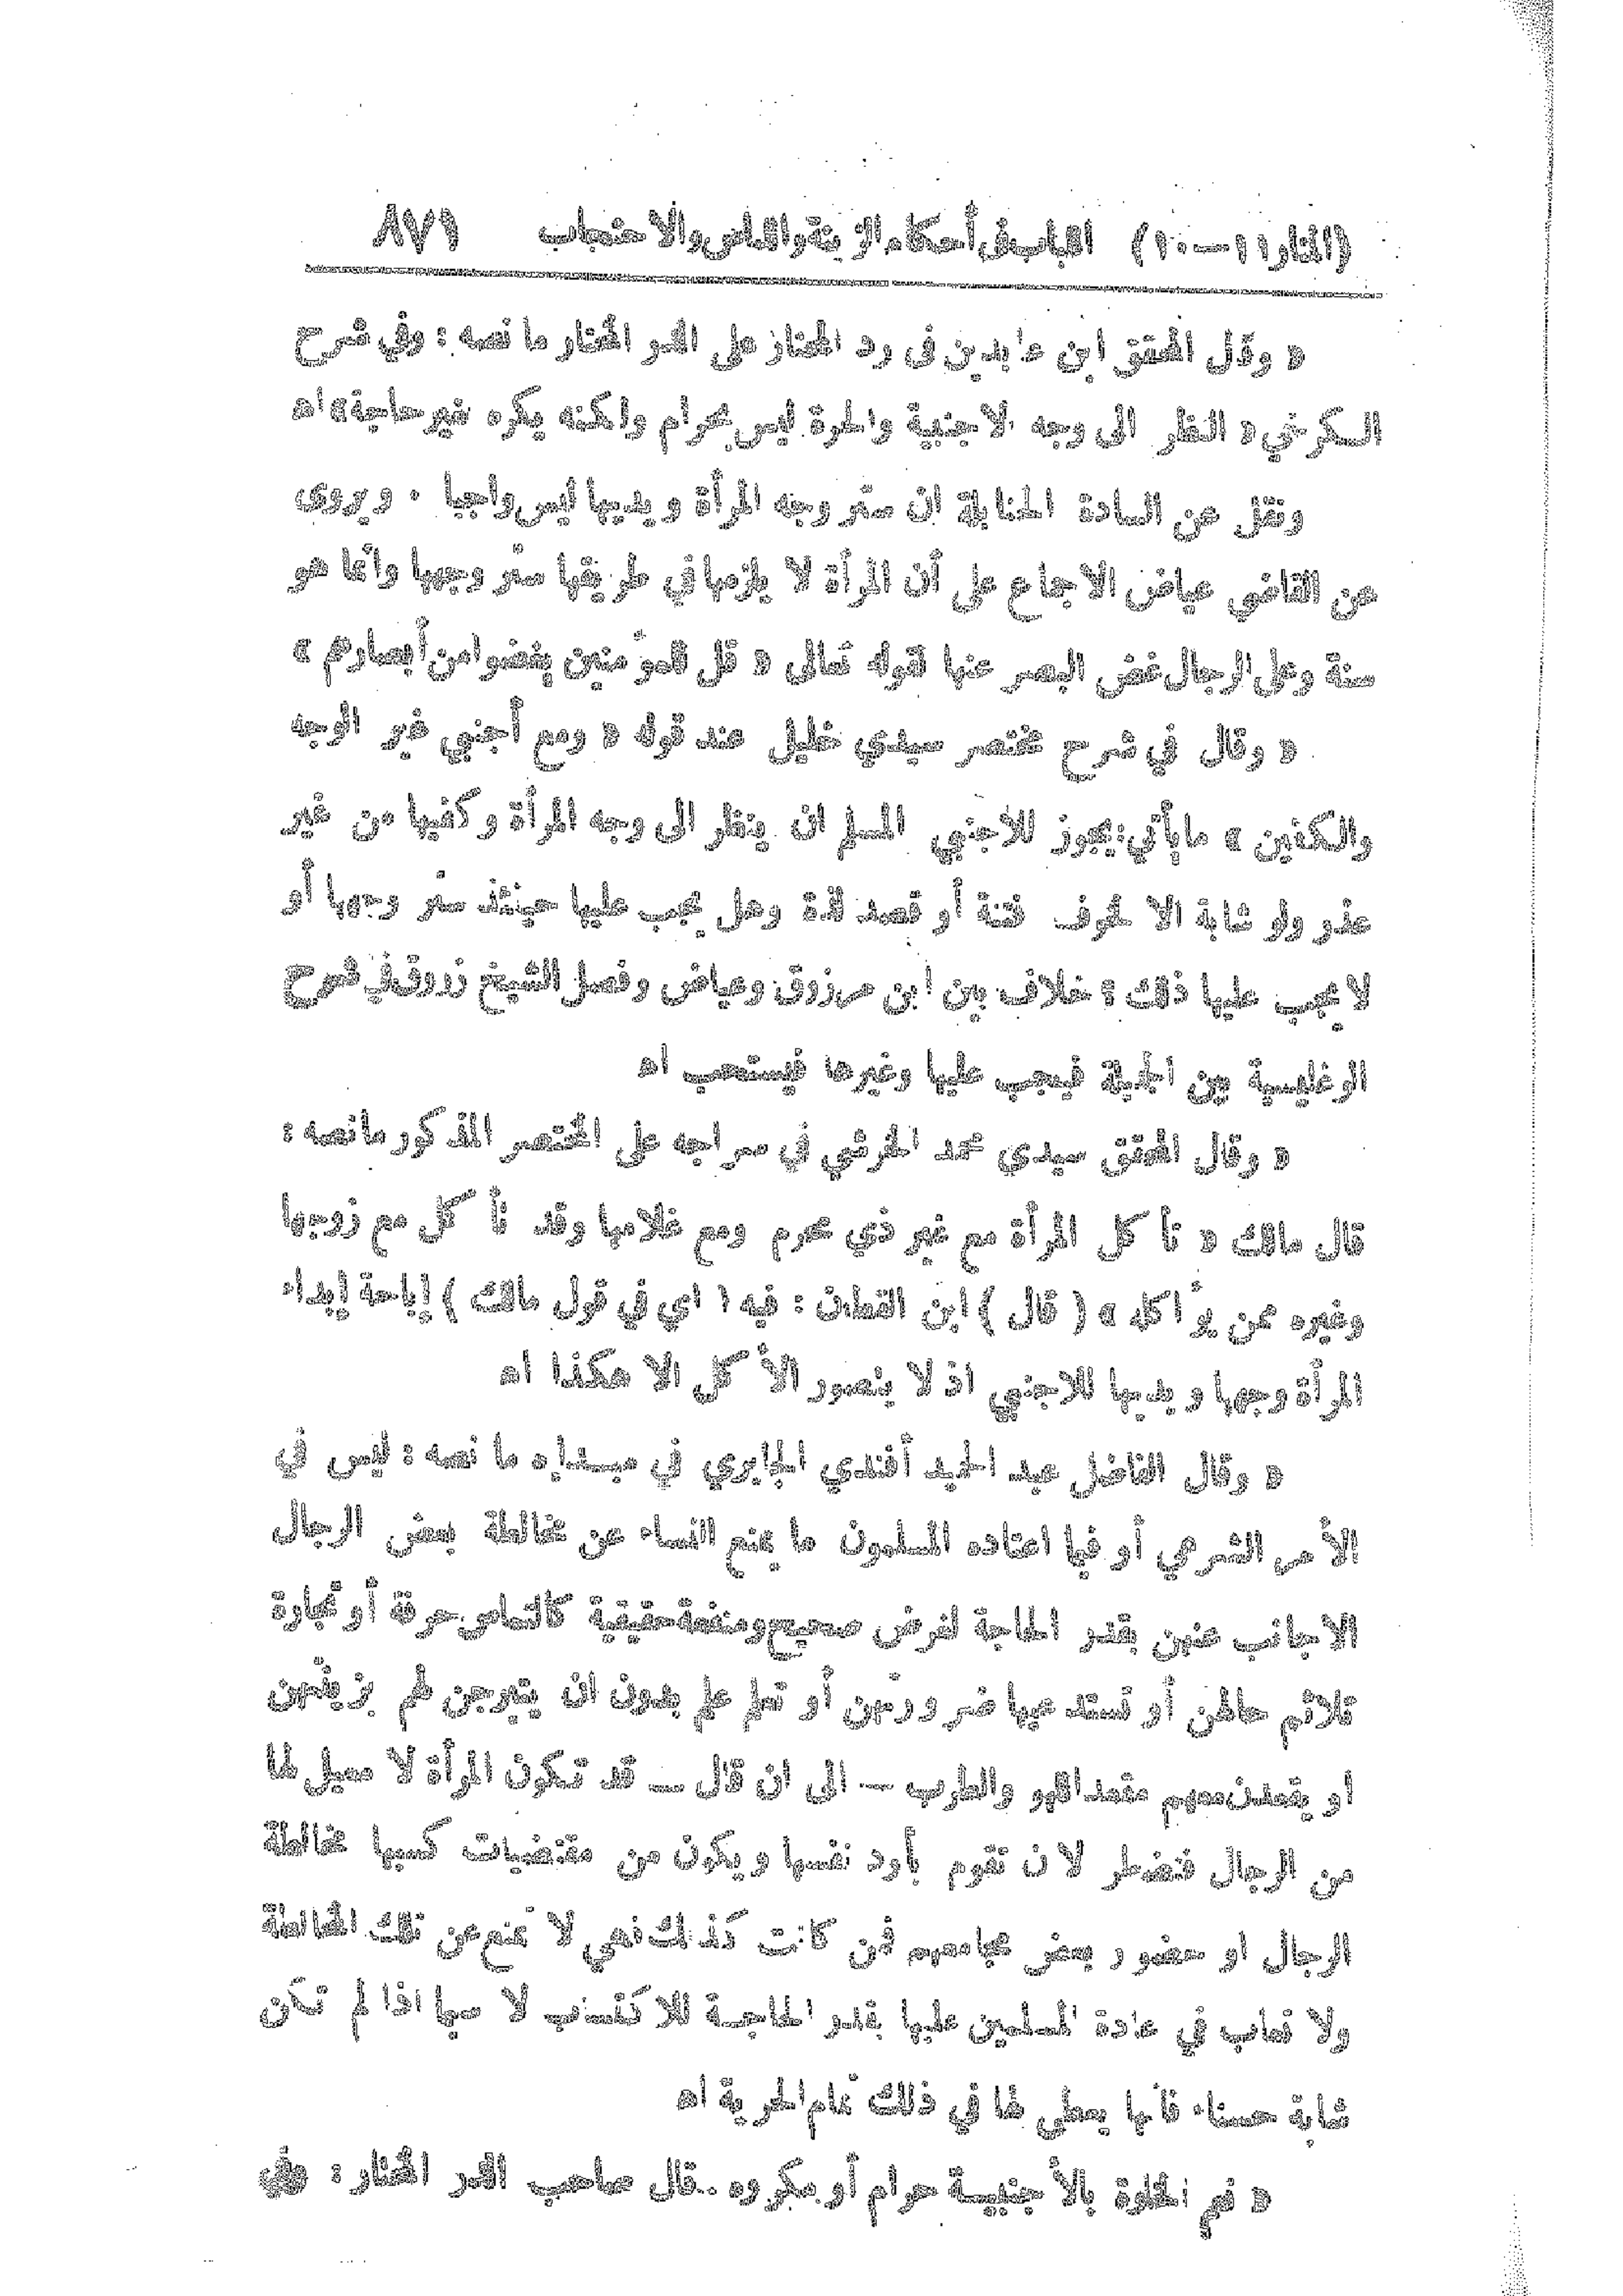 (المنار ١١ – ١٠) اللباب في أحكام الزينة واللباس والاحتجاب ٨٧١
« وقال المحقق ابن عابدين في رد المحتار على الدر المختار ما نصه : وفي شرح
الكرخي « النظر الى وجه الاجنبية والحرة ليس بحرام ولكنه يكره لغير حاجة » اه
ونقل عن السادة الحنابلة ان ستر وجه المرأة ويديها ليس واجبا . ويروى
عن القاضي عياض الاجماع على أن المرأة لا يلزمها في طريقها ستر وجهها وانما هو
سنة وعلى الرجال غض البصر عنها لقوله تعالى « قل للمؤمنين يغضوا من أبصارهم »
« وقال في شرح مختصر سيدي خليل عند قوله « ومع أجنبي غير الوجه
والكفين » ما يأتي : يجوز للاجنبي المسلم ان ينظر الى وجه المرأة وكفيها من غير
عذر ولو شابة الا لخوف فتنة أو قصد لذة وهل يجب عليها حينئذ ستر وجهها أو
لا يجب عليها ذلك ؟ خلاف بين ابن مرزوق وعياض وفصل الشيخ زروق في شرح
الوغليسية بين الجميلة فيجب عليها وغيرها فيستحب اه
« وقال المحقق سيدي محمد الخرشي في سراجه على المختصر المذكور ما نصه :
قال مالك « تأكل المرأة مع غير ذي محرم ومع غلامها وقد تأكل مع زوجها
وغيره ممن يؤاكله » ( قال ) ابن القطان : فيه ( اي في قول مالك ) إباحة إبداء
المرأة وجهها ويديها للاجنبي اذ لا يتصور الأكل الا هكذا اه
« وقال الفاضل عبد الحميد أفندي الجابري في مبداه ما نصه : ليس في
الأمر الشرعي أو فيما اعتاده المسلمون ما يمنع النساء عن مخالطة بعض الرجال
الاجانب عنهن بقدر الحاجة لغرض صحيح ومنفعة حقيقية كالتماس حرفة أو تجارة
تلائم حالهن أو تستدعيها ضرورتهن أو تعلم علم بدون ان يتبرجن لهم بزينتهن
او يقعدن معهم مقعد اللهو والطرب — الى ان قال — قد تكون المرأة لا معيل لها
من الرجال فتضطر لان تقوم بأود نفسها ويكون من مقتضيات كسبها مخالطة
الرجال او حضور بعض مجامعهم فمن كانت كذلك فهي لا تمنع عن تلك المخالطة
ولا تعاب في عادة المسلمين عليها بقدر الحاجة للاكتساب لا سيما اذا لم تكن
شابة حسناء فأنها يعطى لها في ذلك تمام الحرية اه
« نعم الخلوة بالأجنبية حرام أو مكروه .. قال صاحب الدر المختار : وفي